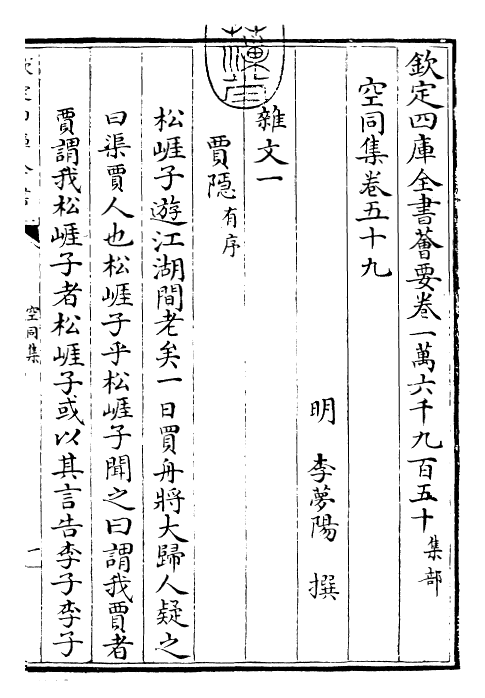 欽定四庫全書薈要卷一萬六千九百五十集部
空同集卷五十九
明 李夢陽 撰
雜文一
賈隱有序
松崕子遊江湖間老矣一日買舟將大歸人疑之
曰渠賈人也松崕子乎松崕子聞之曰謂我賈者
賈謂我松崕子者松崕子或以其言告李子李子
空同集
一